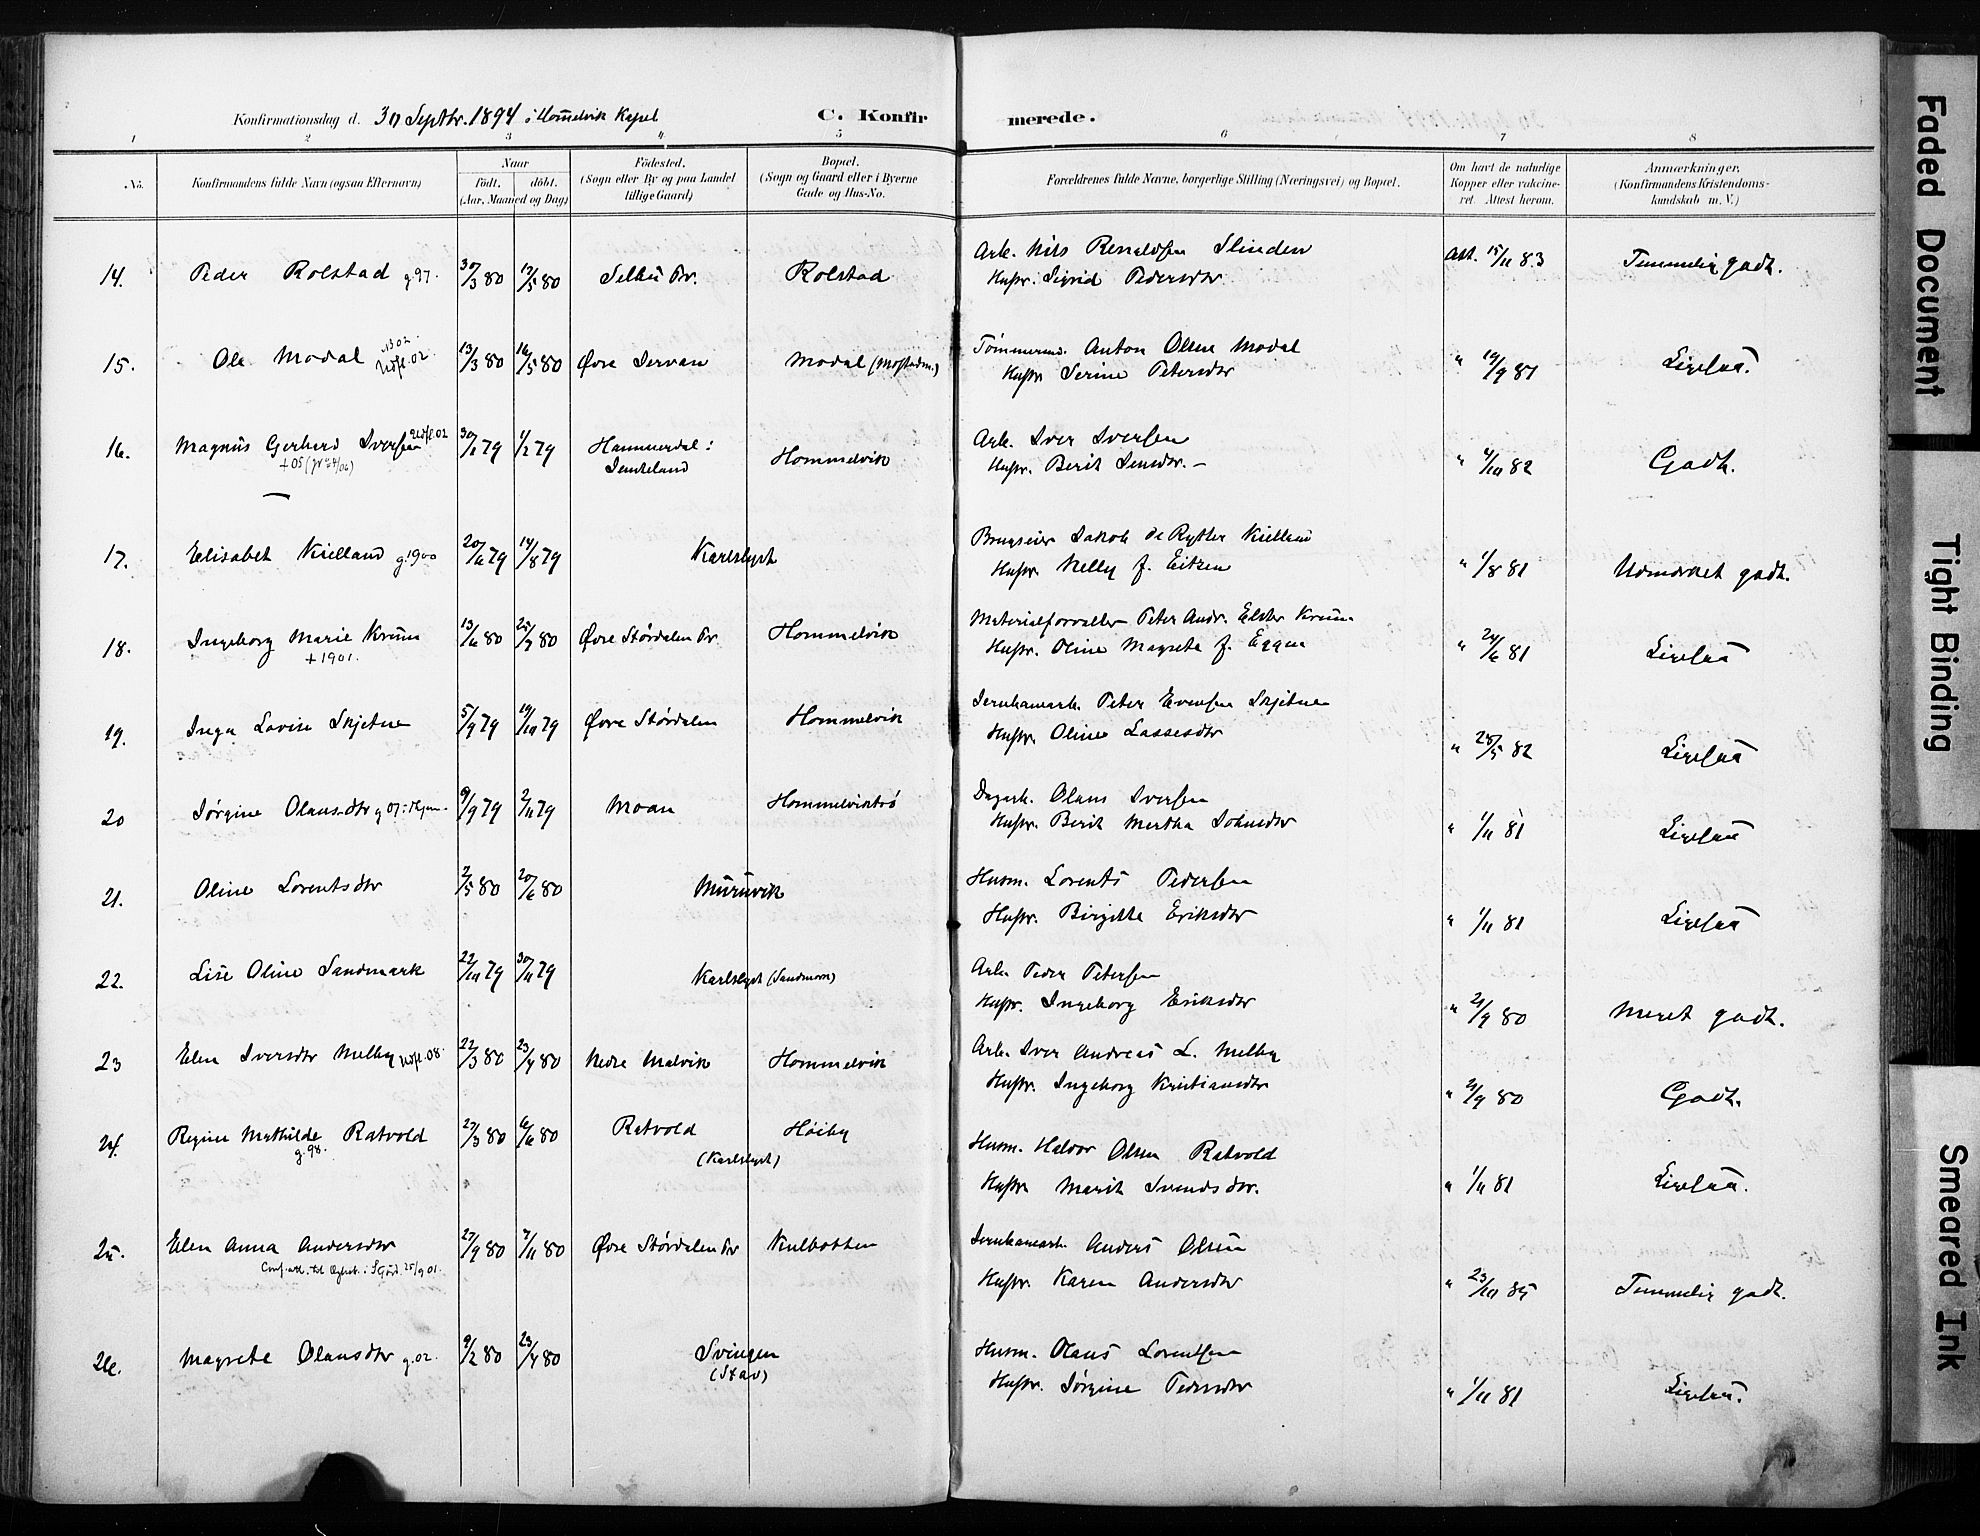 Konfirmationsdag d. 30 Septbr. 1894 i Hommelvik Kapel
C. Konfirmerede.
1 2 3 4 5 6 7 8
No.
Konfirmandens fulde Navn (ogsaa Efternavn)
Naar
født. døbt.
(Aar, Maaned og Dag)
Fødested.
(Sogn eller By og paa Landet
tillige Gaard)
Bopæl.
(Sogn og Gaard eller i Byerne
Gade og Hus-No.
Forældrenes fulde Navne, borgerlige Stilling (Næringsvei) og Bopæl.
Om havt de naturlige
Kopper eller vakcine-
ret. Attest herom.
Anmærkninger.
(Konfirmandens Kristendoms-
kundskab m. V.)
14. Peder Rolstad g. 97. 30/3 80 17/5 80 Selbu Pr. Rolstad Arb. Nils Slinden Att. 15/11 83 Temmelig godt.
Hustr. Sigrid Pedersdtr
15. Ole Modal Udfl. 02. 13/3 80 16/5 80 Øvre Modal (Mostadm.) Anton Olsen Modal " 19/9 81 Ligesaa.
Hustr Serine Petersdtr
16. Magnus Gerhard Iversen Udfl. 02 79 1/2 79 Hammerdal: Hommelvik Arb. Iver Iversen 82 Godt.
+ 05 Hustr. Berit
17. Elisabet Kielland g. 1900 20/6 79 14/8 79 Karlslyst Brugseier Jakob de Rytter Kielland " 1/8 81 Udmærket godt.
Hustr. Nelly f. Eitzen
18. Ingeborg Marie Krum 13/6 80 80 Øvre Størdalen Pr Hommelvik Materialforvalter Peter Andr. Elster Krum " 24/6 81 Ligesaa
+ 1901. Hustr. Oline Magrete f. Eggen
19. Inga Lovise Skjetne 5/9 79 19/10 79 Øvre Størdalen Hommelvik Jernbanearb. Peter Evensen Skjetne " 28/5 82 Ligesaa
Hustr. Oline Lassesdtr
20 Jørgine Olausdtr g 07 9/9 79 2/11 79 Moan Dagarb. Olaus Iversen " 1/11 81 Ligesaa
Hustr. Berit Martha Johnsdtr
21. Oline Lorentsdtr 2/5 80 20/6 80 Muruvik Husm. Lorents Pedersen " 1/11 81 Ligesaa
Hustr. Birgitte Eriksdtr
22. Lise Oline Sandmark 22/10 79 30/11 79 Karlslyst (Sandmark) Arb. Peder Petersen " 21/9 80 Meget godt.
Hustr. Ingeborg Eriksdtr
23 Elen Iversdtr Melby Udfl. 08. 22/3 80 23/4 80 Nedre Malvik Hommelvik Arb. Iver Andreas L. Melby " 21/9 80 Godt.
Hustr. Ingeborg Kristiansdtr
24. Regine Mathilde Ratvold 27/3 80 6/6 80 Ratvold Høiby Husm. Halvor Olsen Ratvold " 1/11 81 Ligesaa.
g. 98. (Karlslyst) Hustr Marit Svendsdtr.
25. Elen Anna Andersdtr 27/9 80 7/11 80 Øvre Størdalen Pr Kulbotten Jernbanearb. Anders Olsen " 23/10 85 Temmelig godt.
Conf. att. til 25/9 01. Hustr. Karen Andersdtr
26. Magrete Olausdtr g. 02. 9/2 80 23/4 80 Svingen Husm. Olaus Lorentsen " 1/11 81 Ligesaa.
(Stav) Hustr. Jørgine Pedersdtr
Faded Document
Tight Binding
Smeared Ink